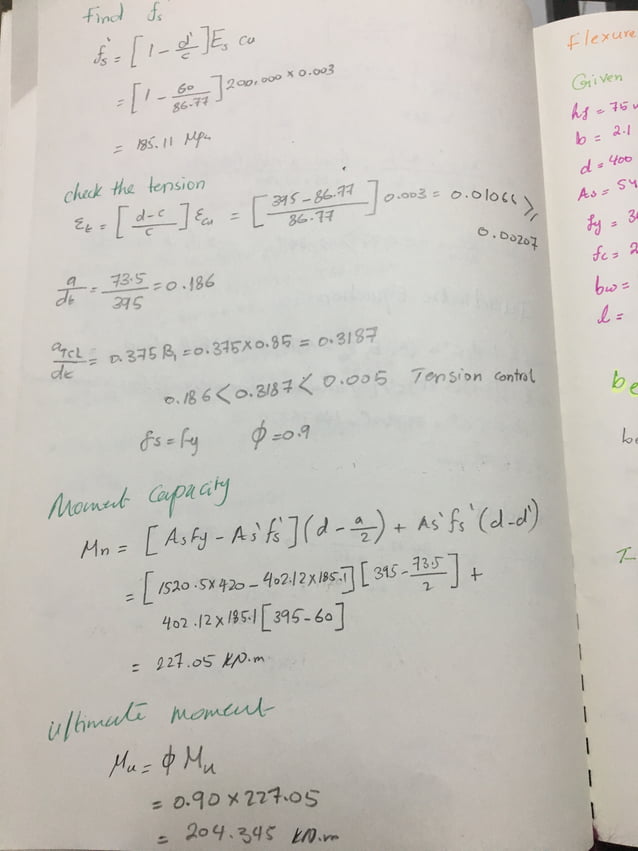 find fs'
fs' = [1 - d'/c] Es εcu
= [1 - 60/86.77] 200,000 x 0.003
= 185.11 Mpa
check the tension
εt = [d-c/c] εcu = [395 - 86.77/86.77] 0.003 = 0.01066 ≥
0.00207
a/dt = 73.5/395 = 0.186
aTCL/dt = 0.375 β1 = 0.375 x 0.85 = 0.3187
0.186 < 0.3187 < 0.005 Tension control
fs = fy ϕ = 0.9
Moment capacity
Mn = [As fy - As' fs'] (d - a/2) + As' fs' (d - d')
= [1520.5 x 420 - 402.12 x 185.1] [395 - 73.5/2] +
402.12 x 185.1 [395 - 60]
= 227.05 KN.m
ultimate moment
Mu = ϕ Mu
= 0.90 x 227.05
= 204.345 KN.m
Flexure
Given
hf = 75
b = 2.1
d = 400
As = 54
fy = 3
fc = 2
bw =
l =
be